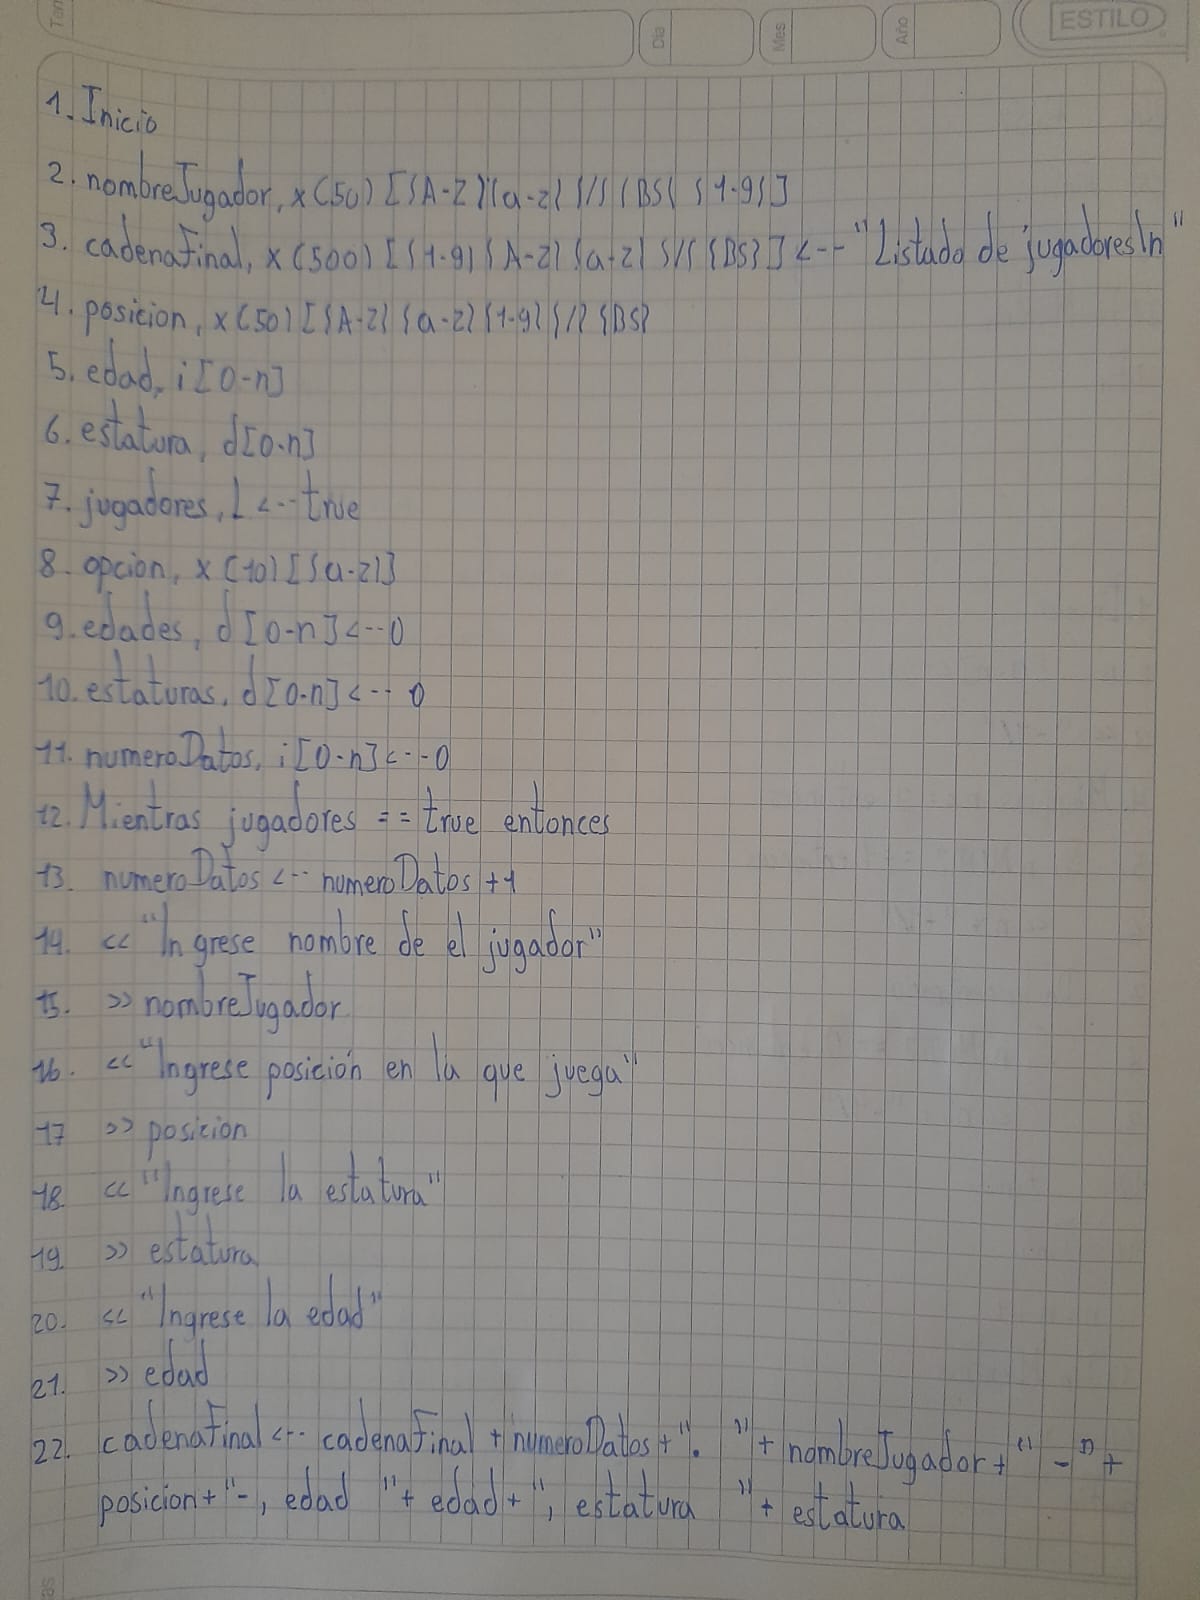 Ten
Día
Mes
Año
ESTILO
1. Inicio
2. nombreJugador, x(50) [{A-Z}{a-z} {/} {BS} {1-9}]
3. cadenaFinal, x(500) [{1-9} {A-Z} {a-z} {/} {BS}] <-- "Listado de jugadores\n"
4. posicion, x(50) [{A-Z} {a-z} {1-9} {/} {BS}
5. edad, i [0-n]
6. estatura, d[0-n]
7. jugadores, L <-- true
8. opcion, x (10) [{a-z}]
9. edades, d [0-n] <-- 0
10. estaturas, d [0-n] <-- 0
11. numeroDatos, i [0-n] <-- 0
12. Mientras jugadores == true entonces
13. numeroDatos <-- numeroDatos +1
14. << "Ingrese nombre de el jugador"
15. >> nombreJugador
16. << "Ingrese posición en la que juega"
17 >> posicion
18. << "Ingrese la estatura"
19. >> estatura
20. << "Ingrese la edad"
21. >> edad
22. cadenaFinal <-- cadenaFinal + numeroDatos + ". " + nombreJugador + " - " +
posicion + "-, edad " + edad + ", estatura " + estatura
as